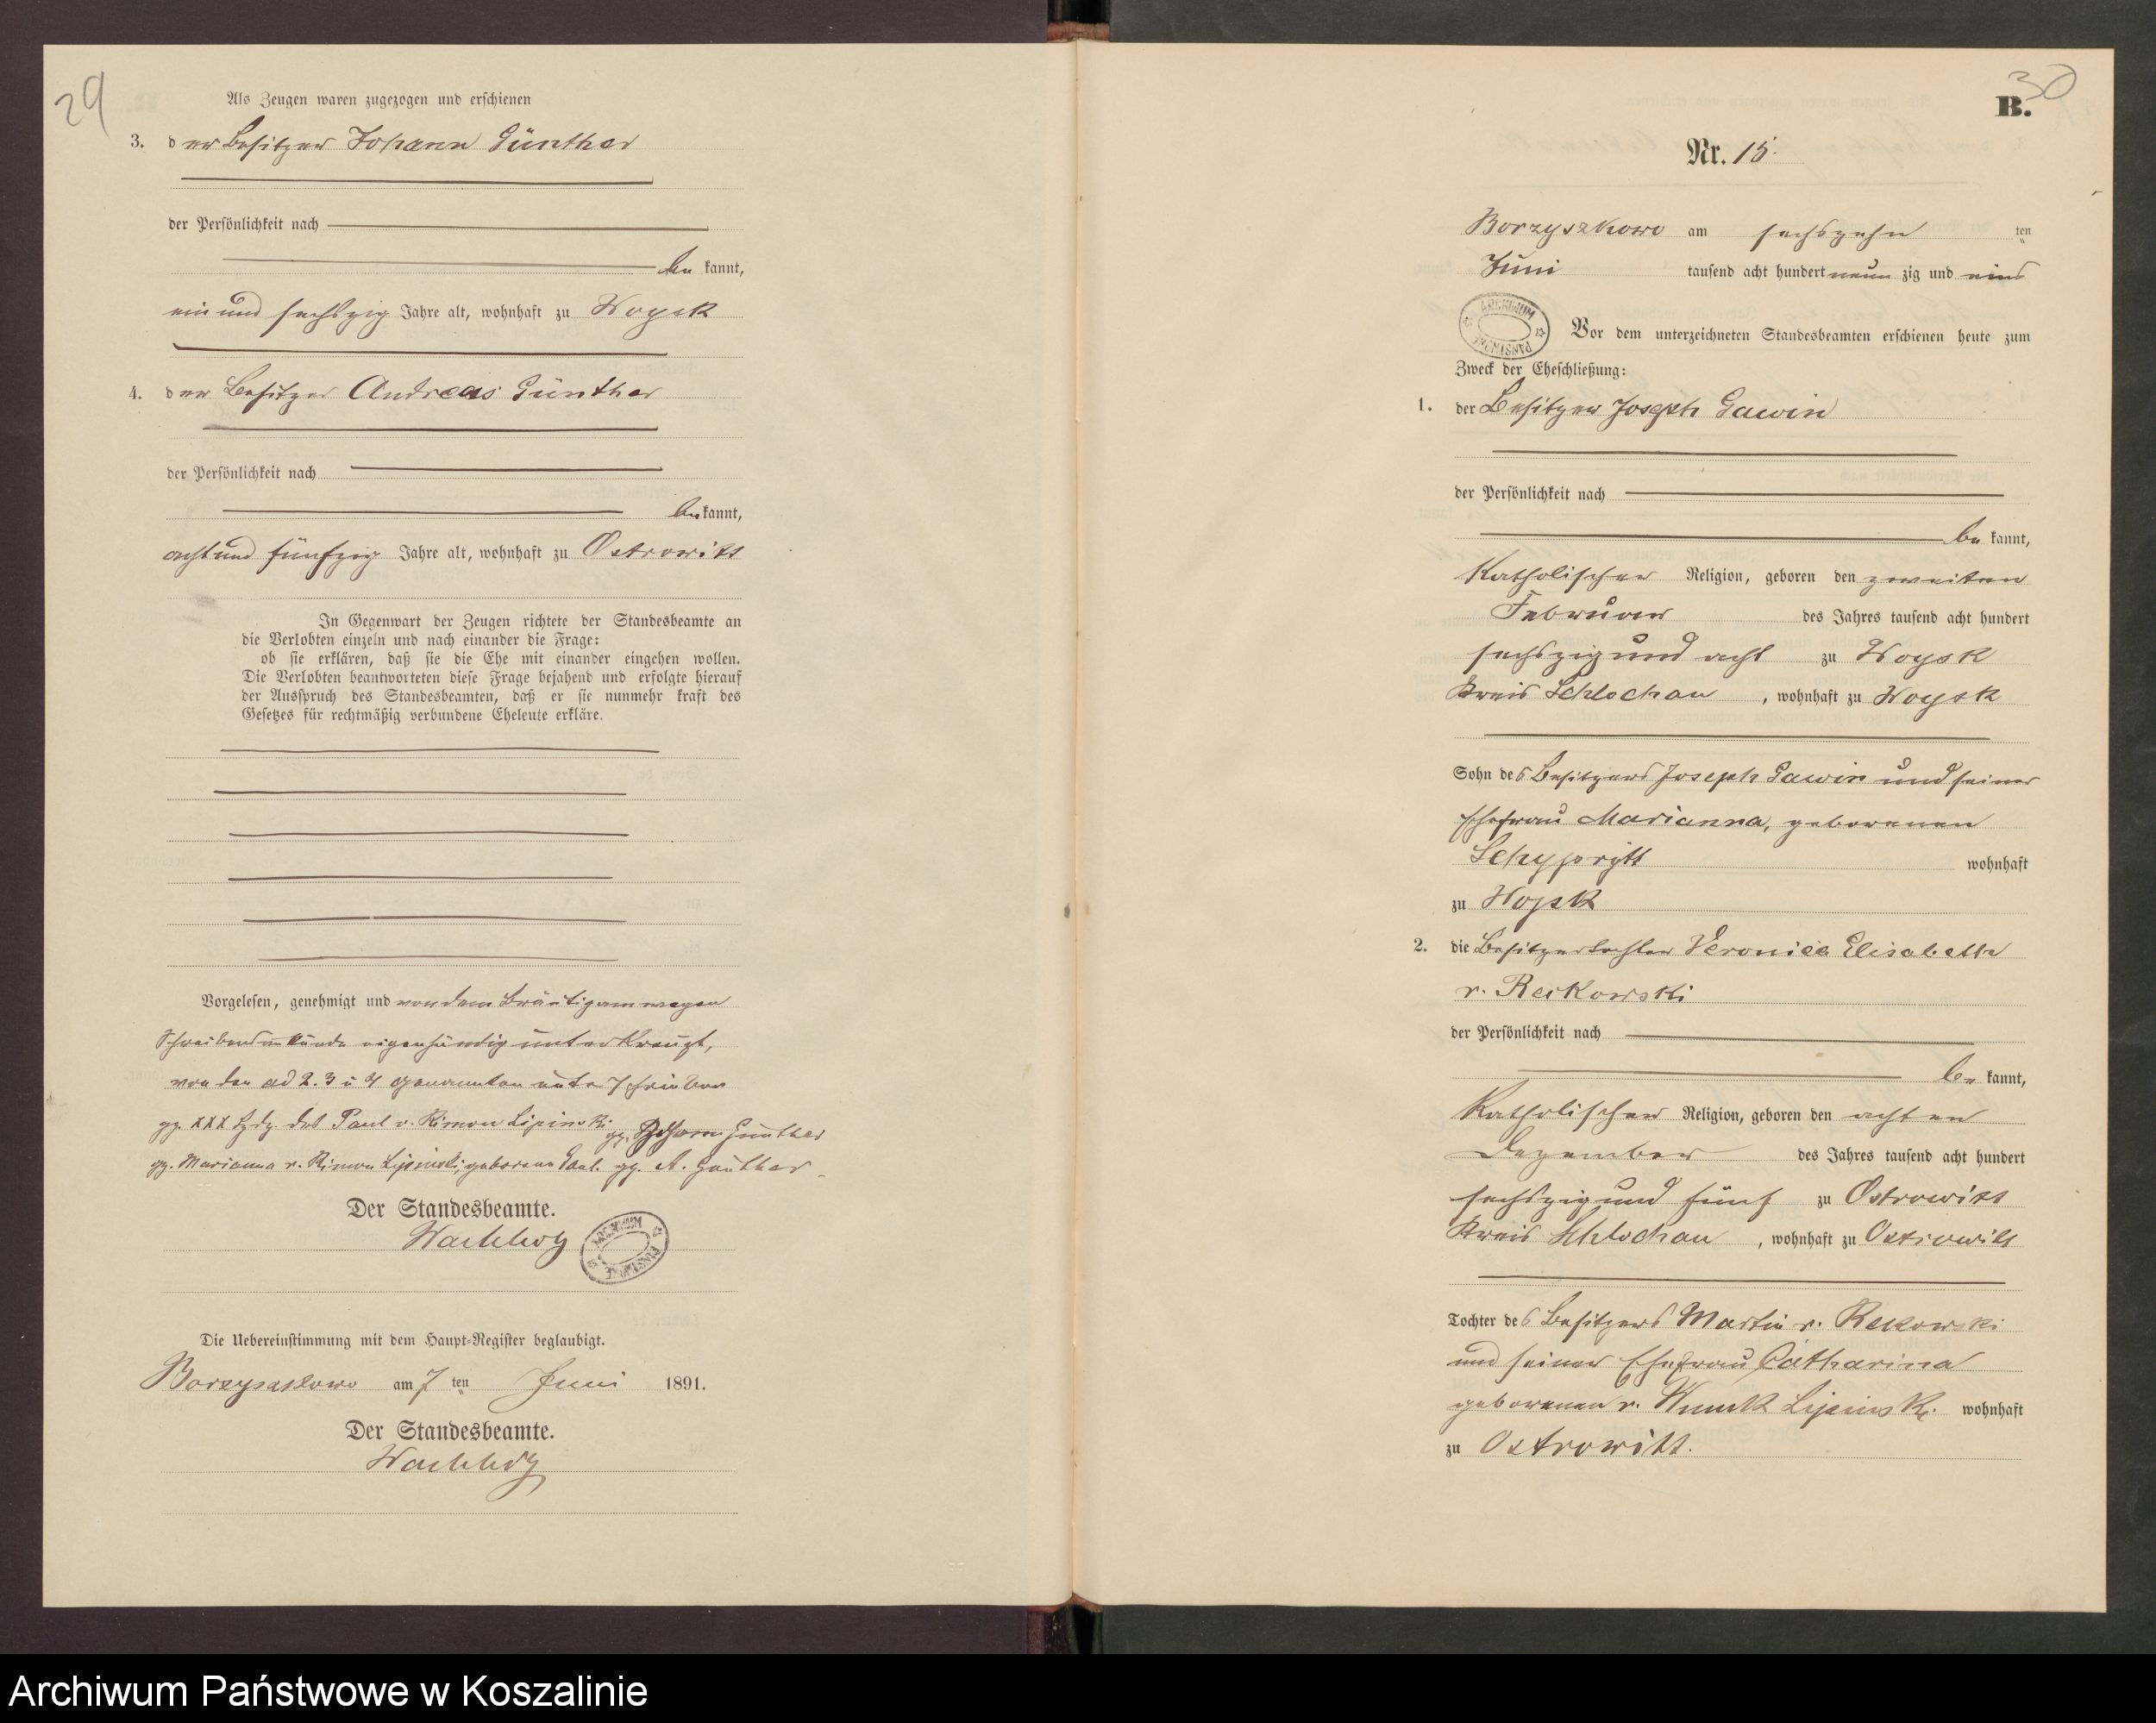 29
Als Zeugen waren zugezogen und erschienen
3. der Besitzer Johann Günther
der Persönlichkeit nach
be kannt,
ein und sechszig Jahre alt, wohnhaft zu Woysk
4. der Besitzer Andreas Günther
der Persönlichkeit nach
be kannt,
acht und fünfzig Jahre alt, wohnhaft zu Ostrowitt
In Gegenwart der Zeugen richtete der Standesbeamte an
die Verlobten einzeln und nach einander die Frage:
ob sie erklären, daß sie die Ehe mit einander eingehen wollen.
Die Verlobten beantworteten diese Frage bejahend und erfolgte hierauf
der Ausspruch des Standesbeamten, daß er sie nunmehr kraft des
Gesetzes für rechtmäßig verbundene Eheleute erkläre.
Vorgelesen, genehmigt und von dem Bräutigam wegen
Schreibensunkunde eigenhändig unterkreuzt,
von den ad 2. 3 u 4 genannten unterschrieben
gz. XXX Hdz. des Paul v. Kimon Lipinski gz. Johann Günther
gz. Marianna v. Kimon Lipinski, geborene gz. A. Günther
Der Standesbeamte.
ARCHIWUM PAŃSTWOWE
Die Uebereinstimmung mit dem Haupt-Register beglaubigt.
Borzyszkowo am 7 ten Juni 1891.
Der Standesbeamte.
30
B.
Nr. 15.
Borzyszkowo am sechszehn ten
Juni tausend acht hundert neun zig und eins
ARCHIWUM PAŃSTWOWE
Vor dem unterzeichneten Standesbeamten erschienen heute zum
Zweck der Eheschließung:
1. der Besitzer Joseph Gawin
der Persönlichkeit nach
be kannt,
Katholischer Religion, geboren den zweiten
Februar des Jahres tausend acht hundert
sechszig und acht zu Woysk
Kreis Schlochau, wohnhaft zu Woysk
Sohn des Besitzers Joseph Gawin und seiner
Ehefrau Marianna, geborenen
wohnhaft
zu Woysk
2. die Besitzertochter Veronica Elisabeth
v. Reikowski
der Persönlichkeit nach
be kannt,
Katholischer Religion, geboren den achten
Dezember des Jahres tausend acht hundert
sechszig und fünf zu Ostrowitt
Kreis Schlochau, wohnhaft zu Ostrowitt
Tochter des Besitzers Martin v. Rekowski
und seiner Ehefrau Catharina
geborenen v. Wnuk Lipinski wohnhaft
zu Ostrowitt.
Archiwum Państwowe w Koszalinie